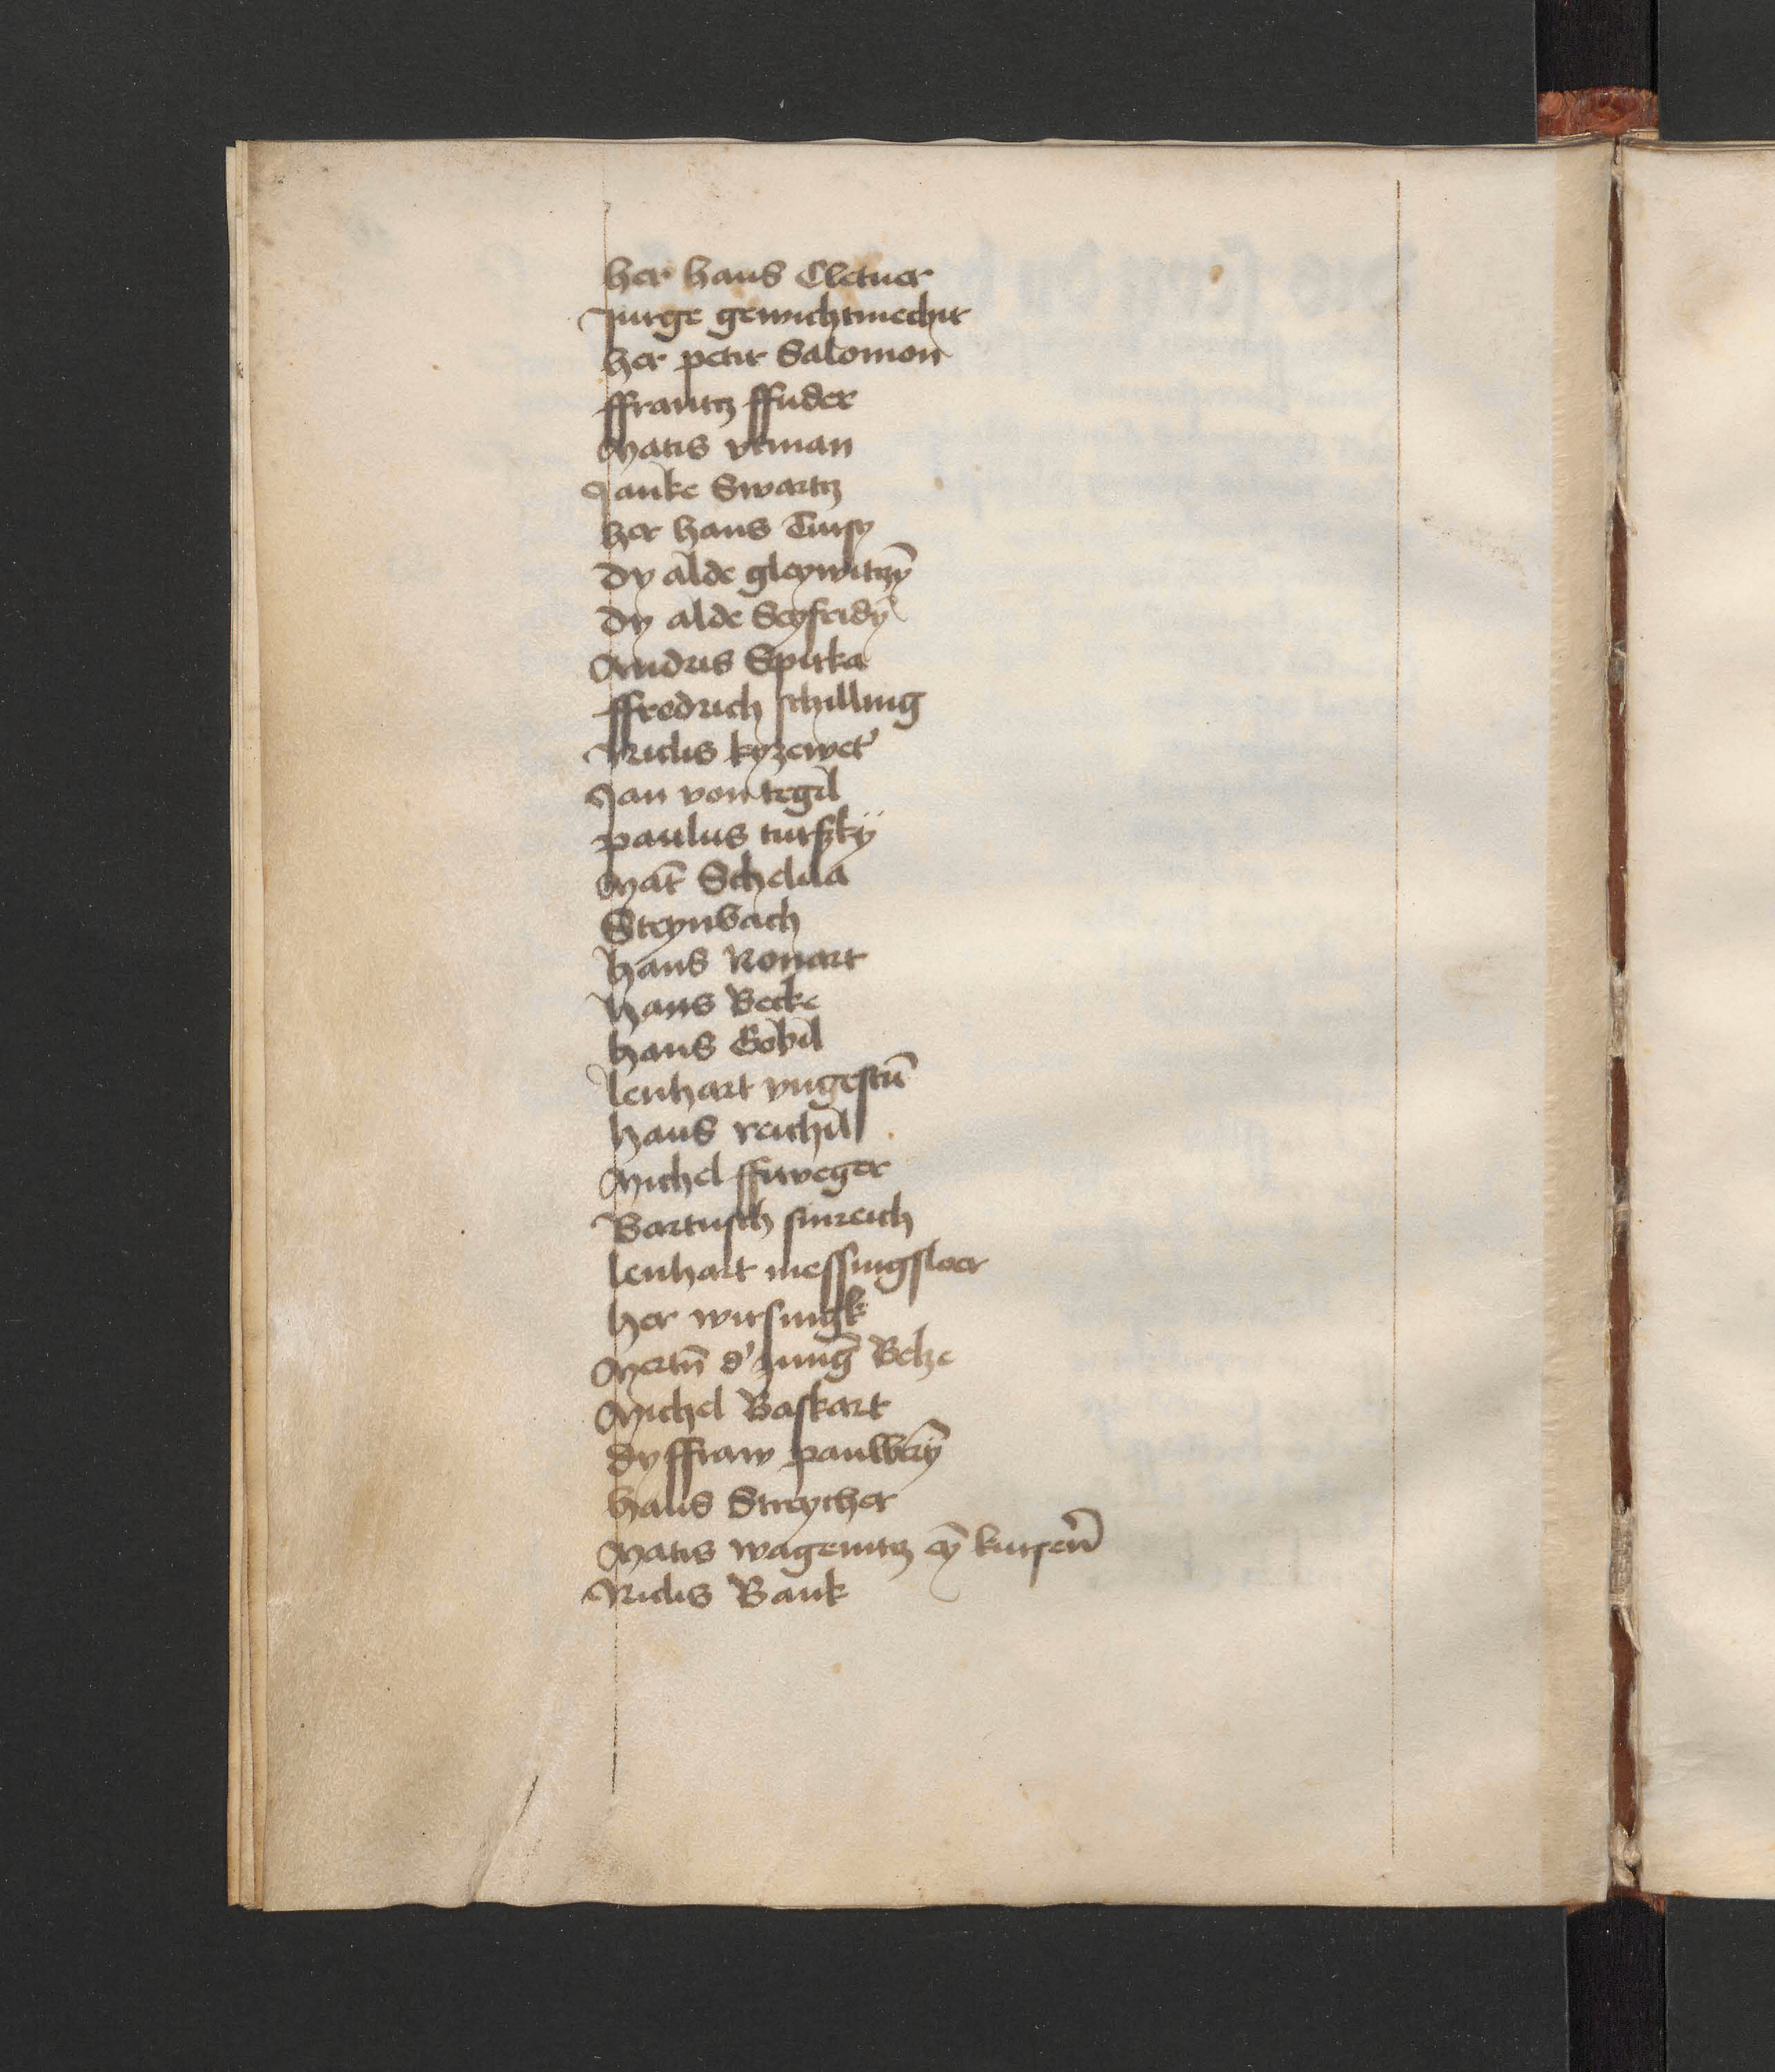 her hans Cletner
Jurge gewichtmechir
her petir Salomon
ffrantz ffuder
Matis vrman
Janke Swartz
her hans Tursy
Dy alde gleywitzȳ
Dy alde Seyfridȳ
Andris Spirka
ffredrich schilling
Niclis kyzewet'
Jan von tegil
paulus turszkÿ
Mat̄ Schelda
Steynbach
hans Ronart
hans Becke
hans Gobil
lenhart vngestū
hans reichil
Michel ffuweger
Bartusch sinreich
lenhart messingsloer
her wirsingk
Mertn̄ d' Junḡ Beke
Michel Baskart
dy ffraw pauwerȳ
hans Streycher
Matis wagenitz eȳ kursen̄
Niclis Bank